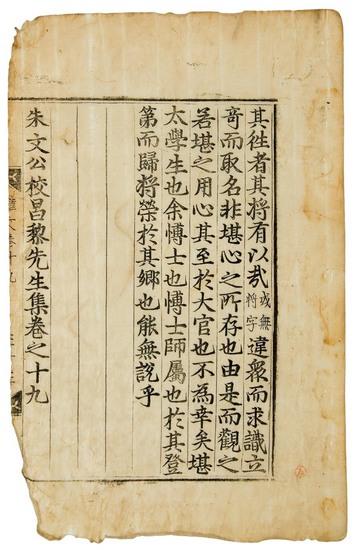 其徃者其将有以哉或無将字違衆而求識立
竒而取名非堪心之所存也由是而觀之
若堪之用心其至於大官也不為幸矣堪
太學生也余愽士也愽士師屬也於其登
第而歸将榮於其鄉也能無說乎
朱文公校昌黎先生集卷之十九